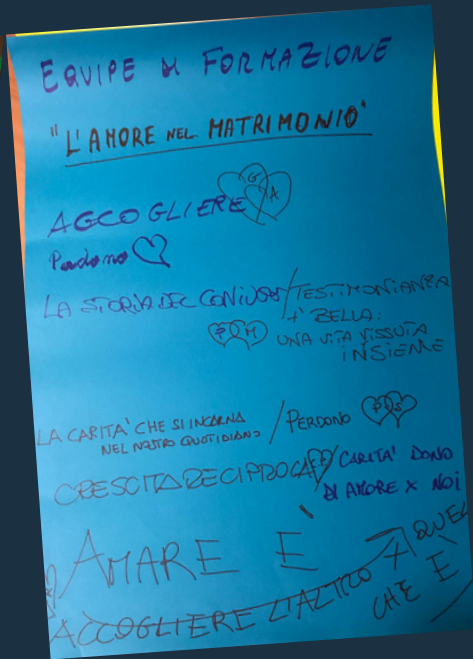 EQUIPE DI FORMAZIONE
"L'AMORE NEL MATRIMONIO"
ACCOGLIERE G A
Perdono
LA STORIA DEL CONIUGE / TESTIMONIANZA
+ BELLA:
P M UNA VITA VISSUTA
INSIEME
LA CARITA' CHE SI INCARNA
NEL NOSTRO QUOTIDIANO / PERDONO P S
CRESCITA RECIPROCA / CARITA' DONO
DI AMORE X NOI
AMARE È
ACCOGLIERE L'ALTRO X QUEL
CHE È